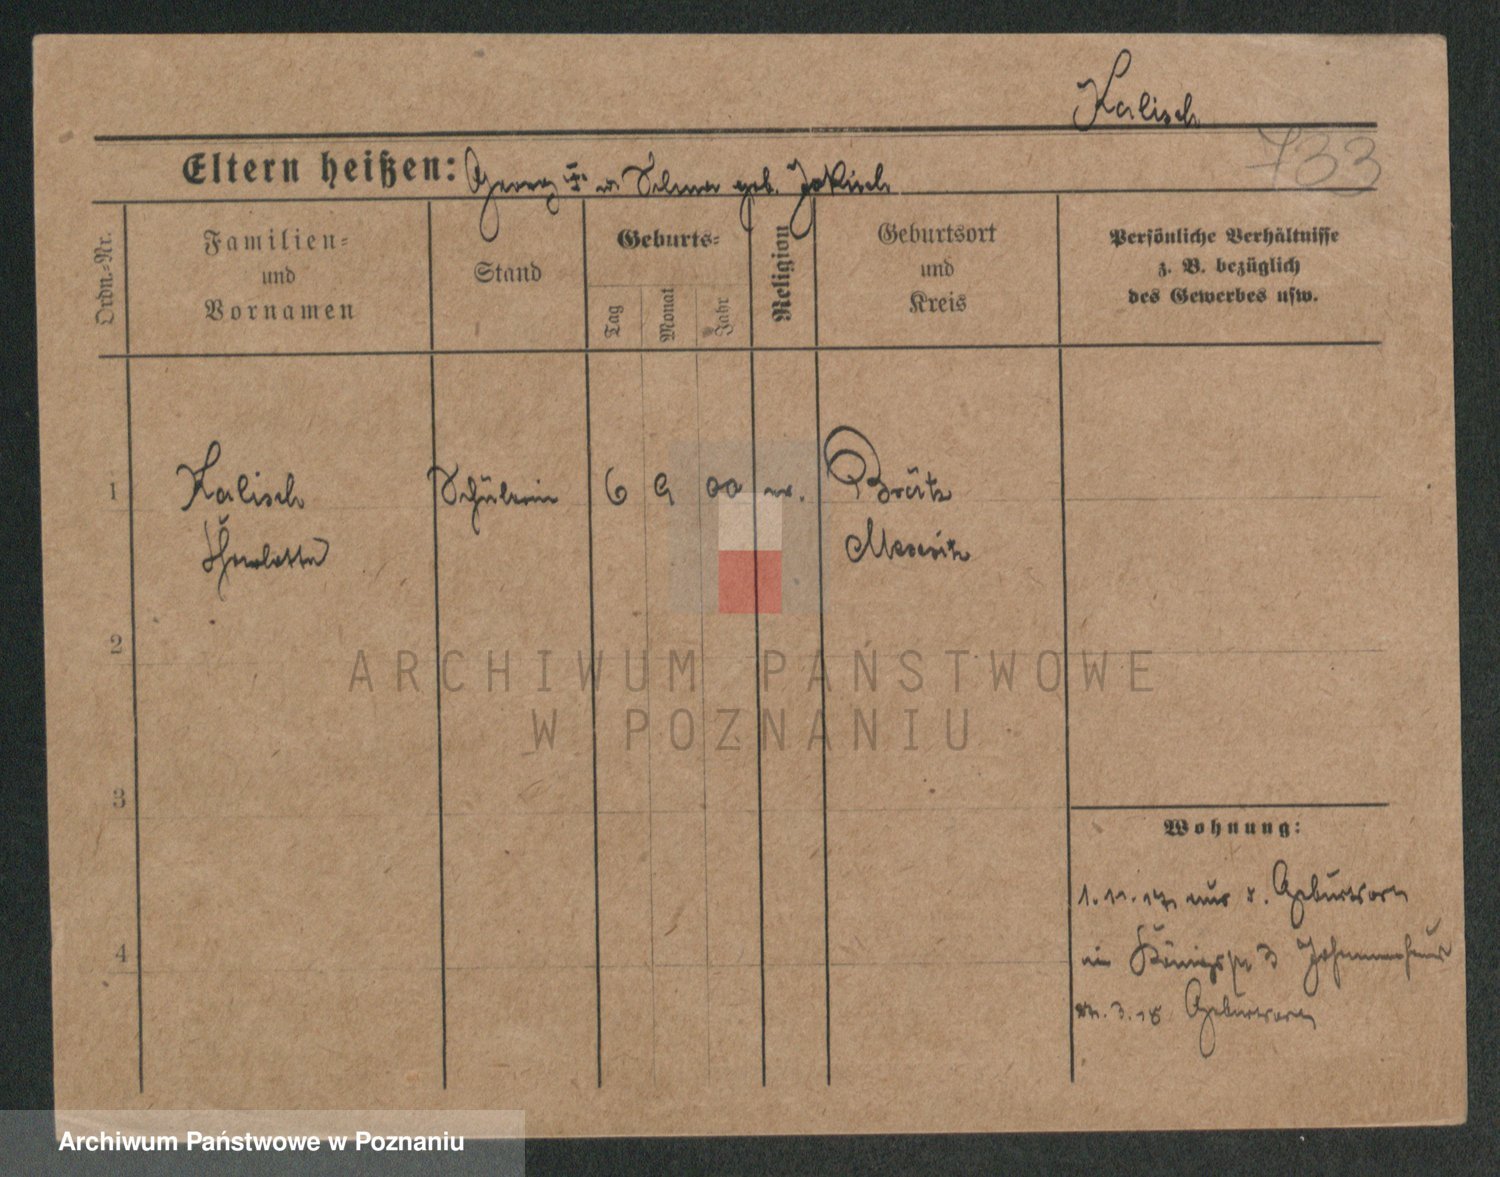 Kalisch
733
Eltern heißen: Georg † u. Selma geb. Jakisch
Ordn.-Nr.
Familien-
und
Vornamen
Stand
Geburts-
Tag
Monat
Jahr
Religion
Geburtsort
und
Kreis
Persönliche Verhältnisse
z. B. bezüglich
des Gewerbes usw.
1 Kalisch Schülerin 6 9 00 ev. Brätz
Charlotte Meseritz
2
3
4
Wohnung:
1. 11. 17 aus
in Königstr 3
3. 18
ARCHIWUM PAŃSTWOWE
W POZNANIU
Archiwum Państwowe w Poznaniu